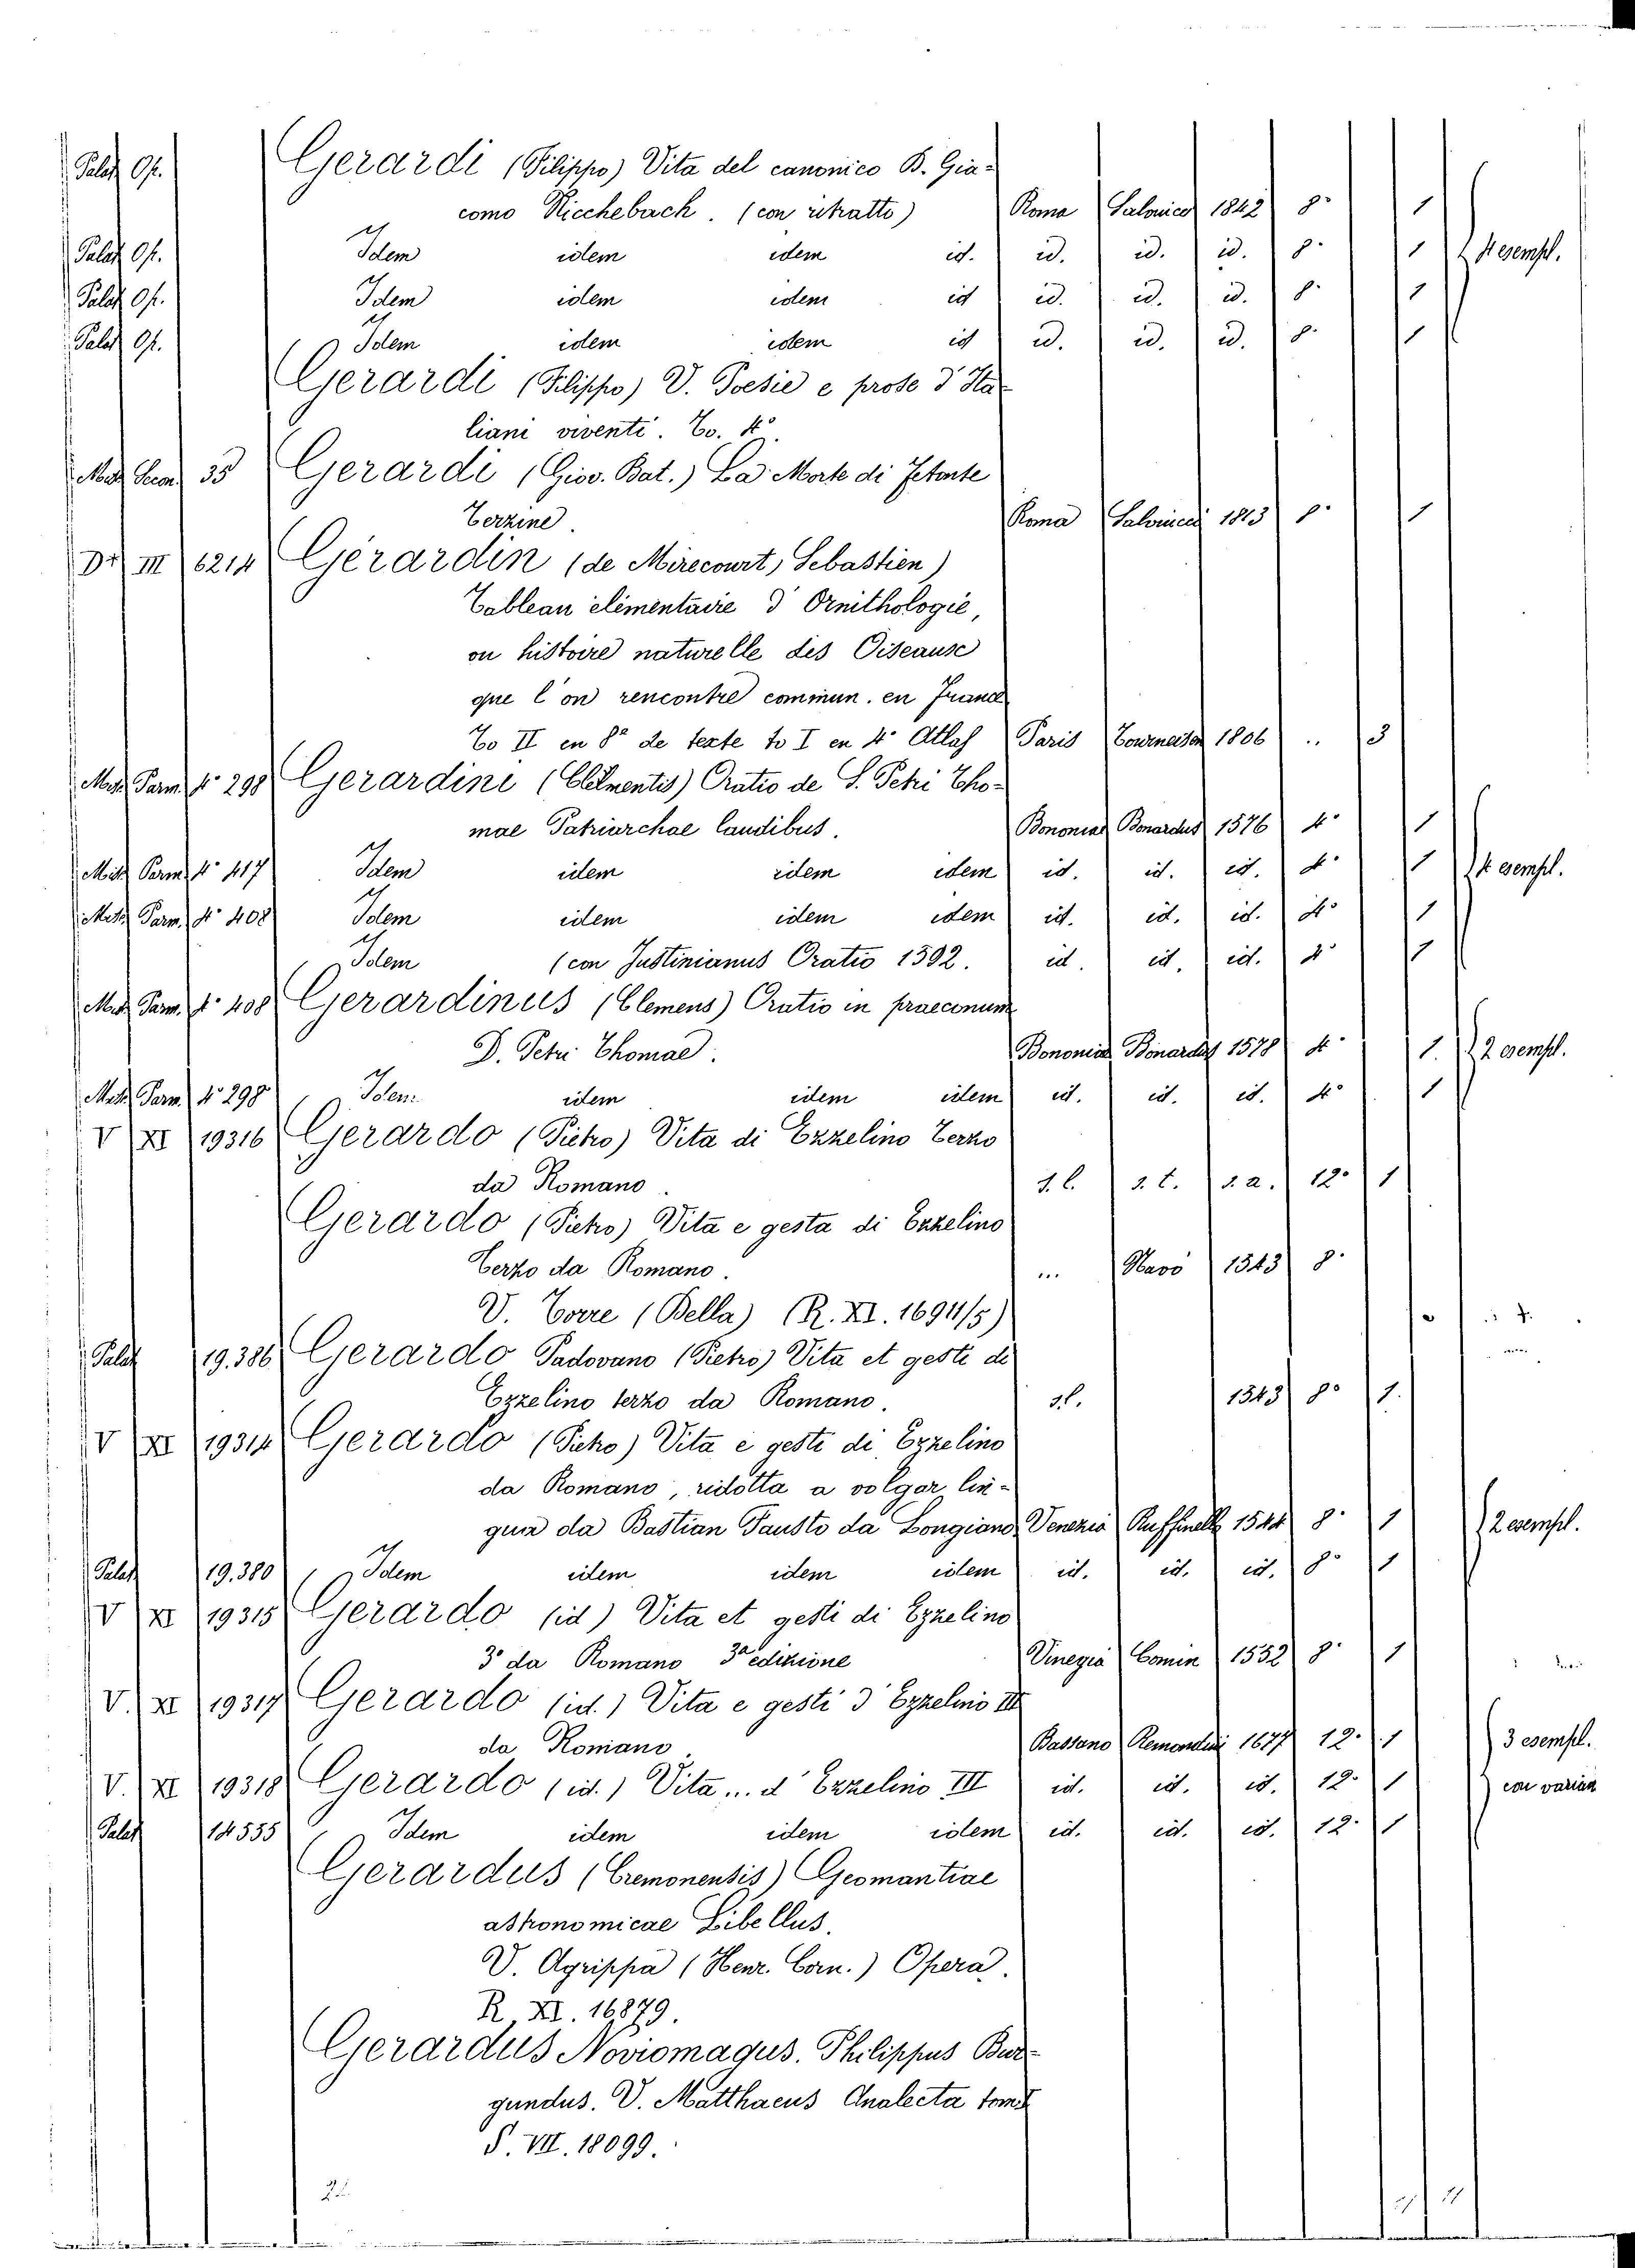 Palat Op. Gerardi (Filippo) Vita del canonico B. Gia-
como Ricchebach. (con ritratto) Roma Salviucci 1842 8° 1
Palat Op. Idem idem idem id. id. id. id. 8. 1 4 esempl.
Palat Op. Idem idem idem id id. id. id. 8. 1
Palat Op. Idem idem idem id id. id. id. 8. 1
Gerardi (Filippo) V. Poesie e prose d'Ita-
liani viventi. To. 4°
35 Gerardi (Giov. Bat.) La Morte di
Terzine. Roma Salviucci 1813 8. 1
III 6214 Gérardin (de Mirecourt, Sebastien)
Tableau élémentaire d'Ornithologie,
ou histoire naturelle des Oiseause
que l'on rencontre commun. en France
To II en 8° de texte to I en 4° Atlas Paris Tourneisen 1806 .. 3
Parm. 4° 298 Gerardini (Clementis) Oratio de S. Petri Tho-
mae Patriarchae laudibus. Bononiae Bonardus 1576 4° 1
Parm. 4° 417 Idem idem idem idem id. id. id. 4° 1 4 esempl.
Parm. 4° 408 Idem idem idem idem id. id. id. 4° 1
Idem (con Justinianus Oratio 1392. id. id. id. 4° 1
Parm. 4° 408 Gerardinus (Clemens) Oratio in praeconum
D. Petri Thomae. Bononiae Bonardus 1578 4° 1. 2 esempl.
Parm. 4° 298 Idem idem idem idem id. id. id. 4° 1
V XI 19316 Gerardo (Pietro) Vita di Ezzelino Terzo
da Romano. s. l. s. t. s. a. 12° 1
Gerardo (Pietro) Vita e gesta di Ezzelino
Terzo da Romano. ... Navò 1543 8.
V. Torre (Bella) (R. XI. 16911/5)
Palat 19.386 Gerardo Padovano (Pietro) Vita et geste di
Ezzelino terzo da Romano. s.l. 1543 8° 1.
V XI 19314 Gerardo (Pietro) Vita e geste di Ezzelino
da Romano, ridotta a volgar lin-
gua da Bastian Fausto da Longiano Venezia Ruffinelli 1544 8. 1 2 esempl.
Palat 19.380 Idem idem idem idem id. id. id. 8° 1
V XI 19315 Gerardo (id) Vita et gesti di Ezzelino
3° da Romano 3ª edizione Vinegia Comin 1552 8. 1
V. XI 19317 Gerardo (id.) Vita e gesti d'Ezzelino III
da Romano. Bassano Remondini 1677 12. 1 3 esempl.
V. XI 19318 Gerardo (id.) Vita... d'Ezzelino III id. id. id. 12. 1 con varian
Palat 14555 Idem idem idem idem id. id. id. 12. 1
Gerardus (Cremonensis) Geomantiae
astronomicae Libellus.
V. Agrippa (Henr. Corn.) Opera.
R. XI. 16879.
Gerardus Noviomagus. Philippus Bur-
gundus. V. Matthaeus Analecta tom.I
S. VII. 18099.